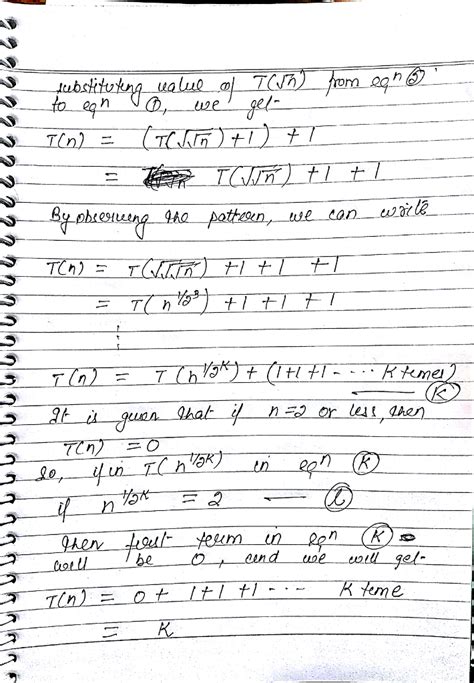 substituting value of T(√n) from eqⁿ ②
to eqⁿ ①, we get-
T(n) = (T(√√n) + 1) + 1
= T(√√n) + 1 + 1
By observing the pattern, we can write
T(n) = T(√√√n) + 1 + 1 + 1
= T(n^1/2^3) + 1 + 1 + 1
T(n) = T(n^1/2^K) + (1+1+1 - ... K times)
— Ⓚ
It is given that if n=2 or less, then
T(n) = 0
So, if in T(n^1/2^K) in eqⁿ Ⓚ
if n^1/2^K = 2 —
then first term in eqⁿ Ⓚ
will be 0, and we will get-
T(n) = 0 + 1+1+1 ... K time
= K